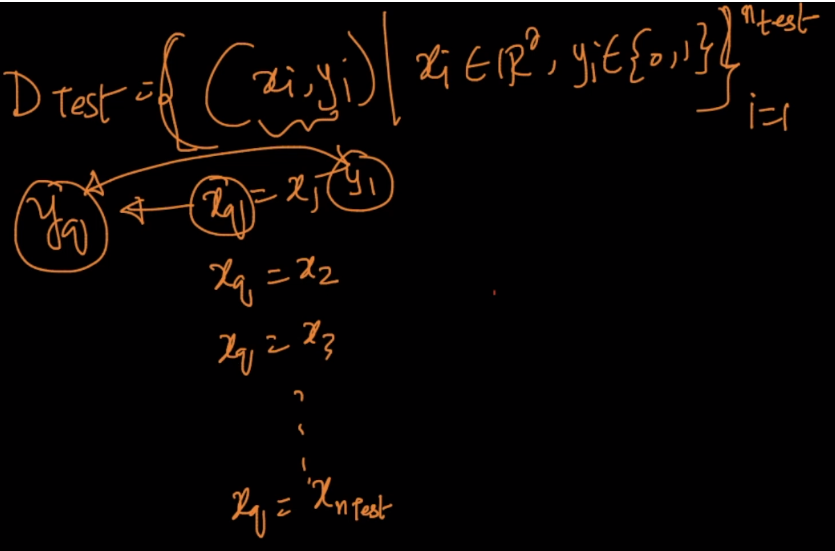 D Test = { (xi, yi) | xi ∈ ℝ^d, yi ∈ {0,1} }_{i=1}^{n test}
yq ← xq = x1, y1
xq = x2
xq = x3
⋮
xq = x_{n Test}